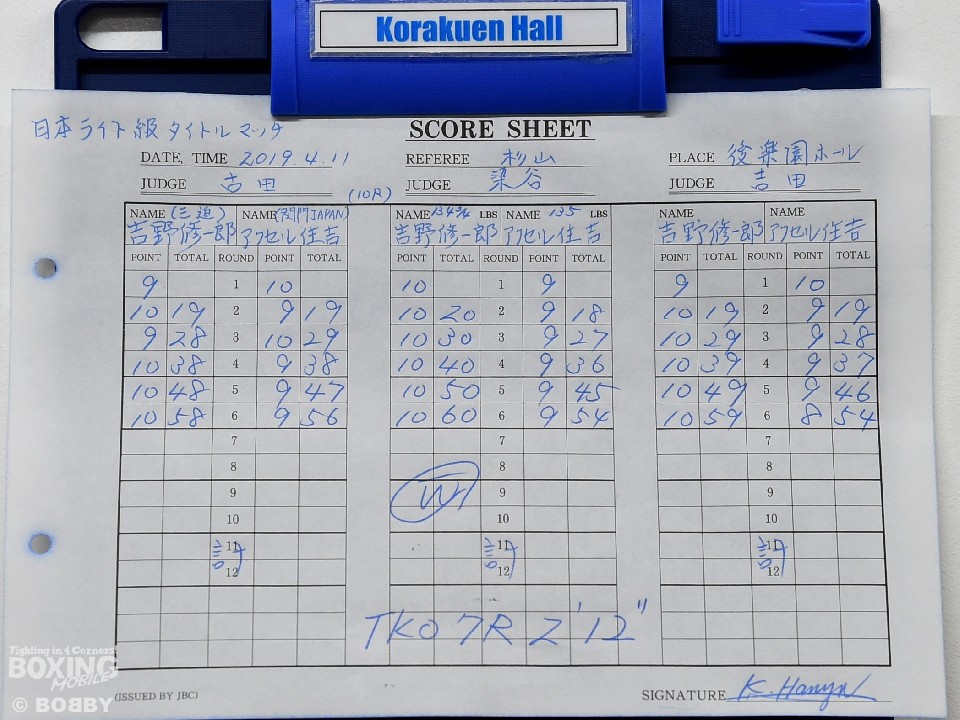 Korakuen Hall
日本ライト級タイトルマッチ
SCORE SHEET
DATE, TIME 2019.4.11 REFEREE 杉山 PLACE 後楽園ホール
JUDGE 吉田 (10R) JUDGE 染谷 JUDGE 吉田
NAME (三迫) NAME (関門JAPAN) NAME 134¾ LBS NAME 135 LBS NAME NAME
吉野修一郎 アクセル住吉 吉野修一郎 アクセル住吉 吉野修一郎 アクセル住吉
POINT TOTAL ROUND POINT TOTAL POINT TOTAL ROUND POINT TOTAL POINT TOTAL ROUND POINT TOTAL
9 1 10 10 1 9 9 1 10
10 19 2 9 19 10 20 2 9 18 10 19 2 9 19
9 28 3 10 29 10 30 3 9 27 10 29 3 9 28
10 38 4 9 38 10 40 4 9 36 10 39 4 9 37
10 48 5 9 47 10 50 5 9 45 10 49 5 9 46
10 58 6 9 56 10 60 6 9 54 10 59 6 8 54
7 7 7
8 8 8
9 W 9 9
10 10 10
11 11 11
12 12 12
TKO 7R 2'12"
Fighting in 4 Corners!
BOXING
MOBILES
© BOBBY
(ISSUED BY JBC) SIGNATURE